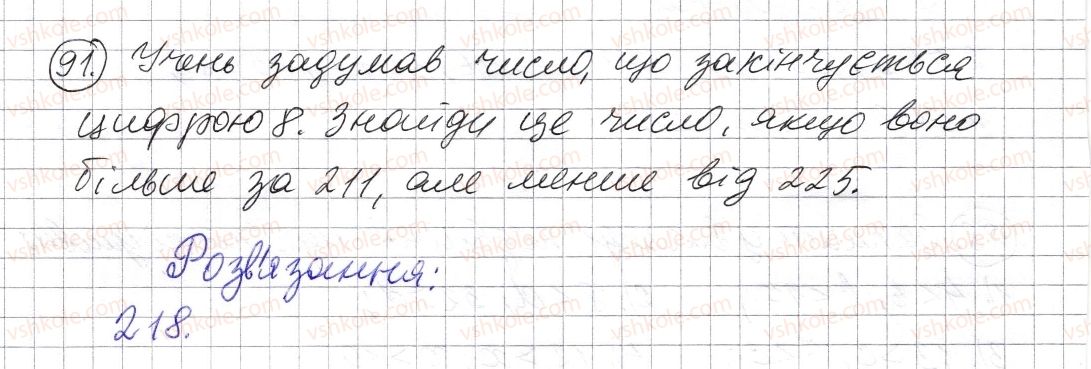 91. Учень задумав число, що закінчується
цифрою 8. Знайди це число, якщо воно
більше за 211, але менше від 225.
Розв'язання:
218.